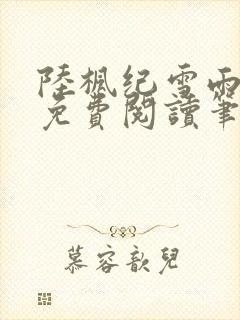 陸楓纪雪雨
免費閱讀筆
慕容歆兒